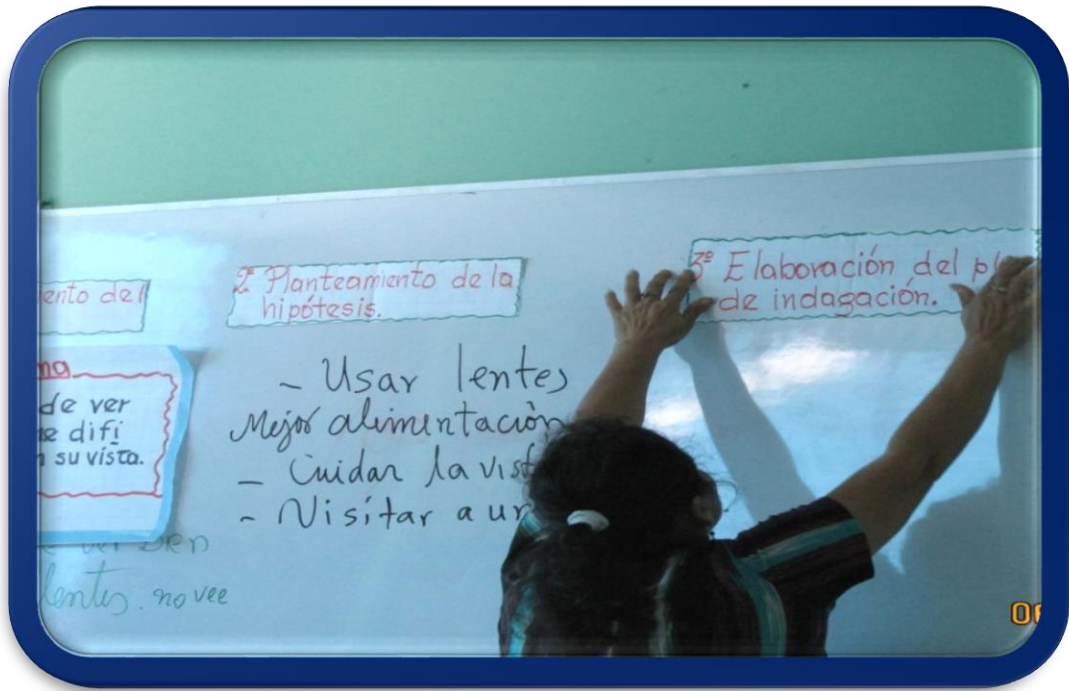 ento del
2º Planteamiento de la
hipótesis.
3º Elaboración del
de indagación.
ma
de ver
difi
su vista.
- Usar lentes
Mejor alimentaciòn
- Cuidar la
- Visitar a
lentes. no vee